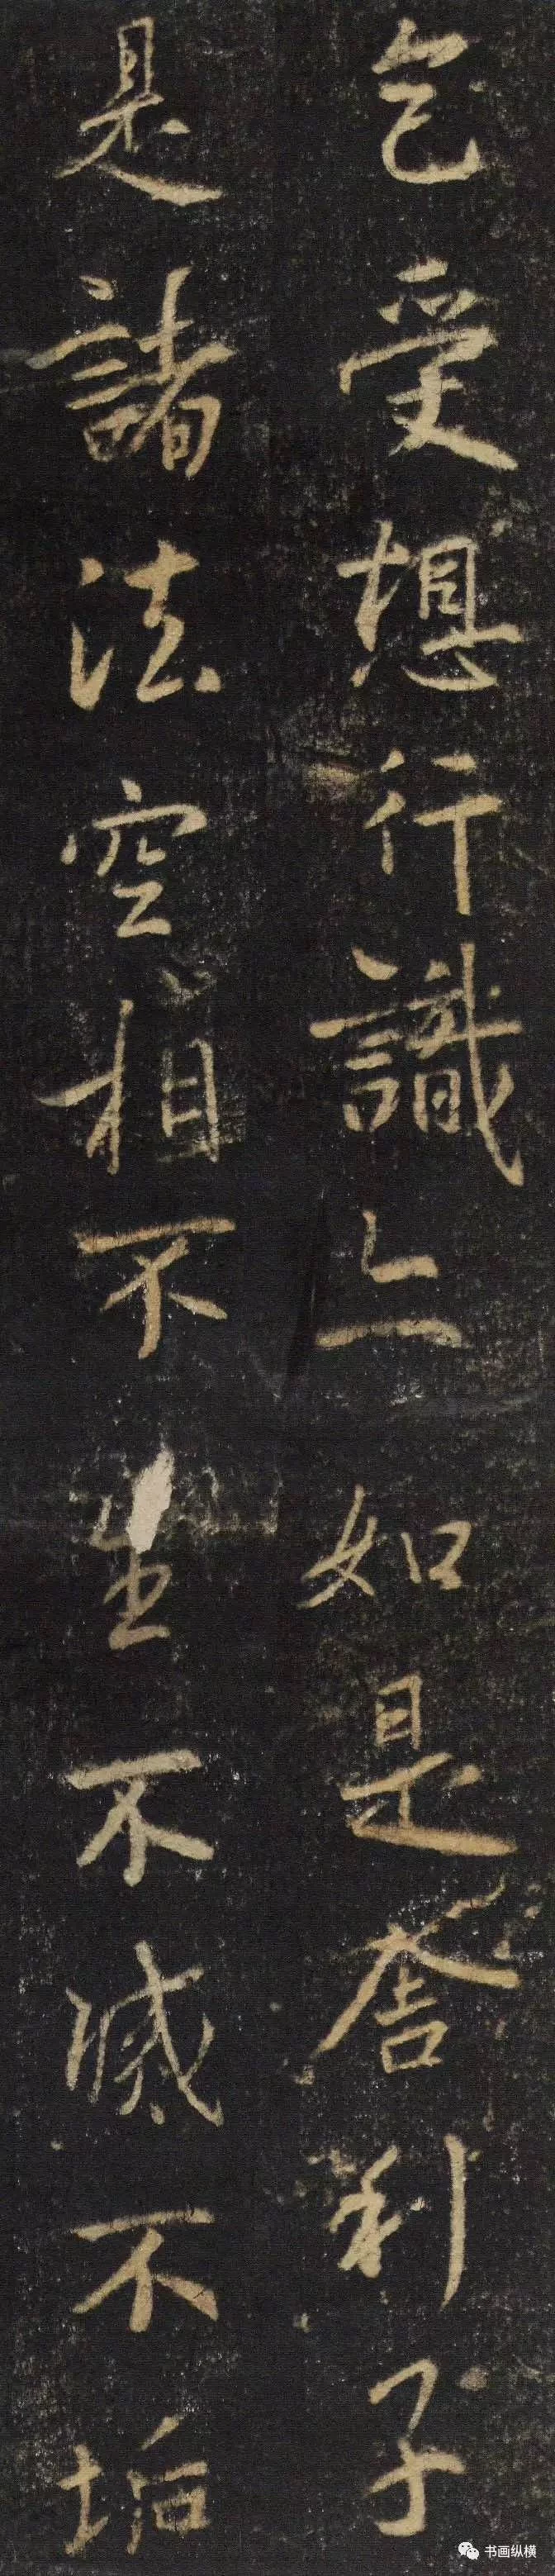 色受想行識亦如是舍利子
是諸法空相不生不滅不垢
书画纵横